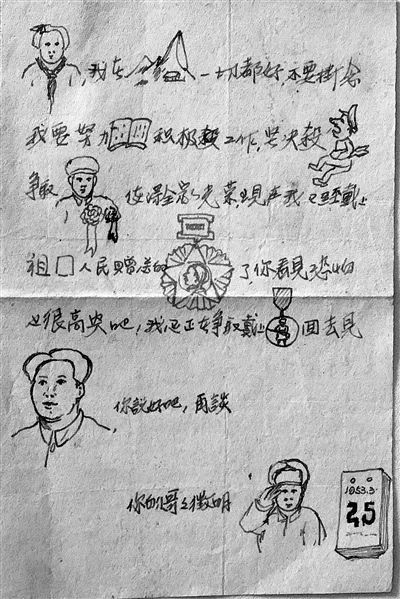 ,我在 一切都好,不要掛念
我要努力 积极 工作,坚决殺
争取 使得全家光荣,現在我已經戴上
祖囗人民贈送的 了,你看見恐怕
也很高兴吧,我还正在争取戴上 回去見
你說好吧,再談
你的哥々徵明
1953.3.
25